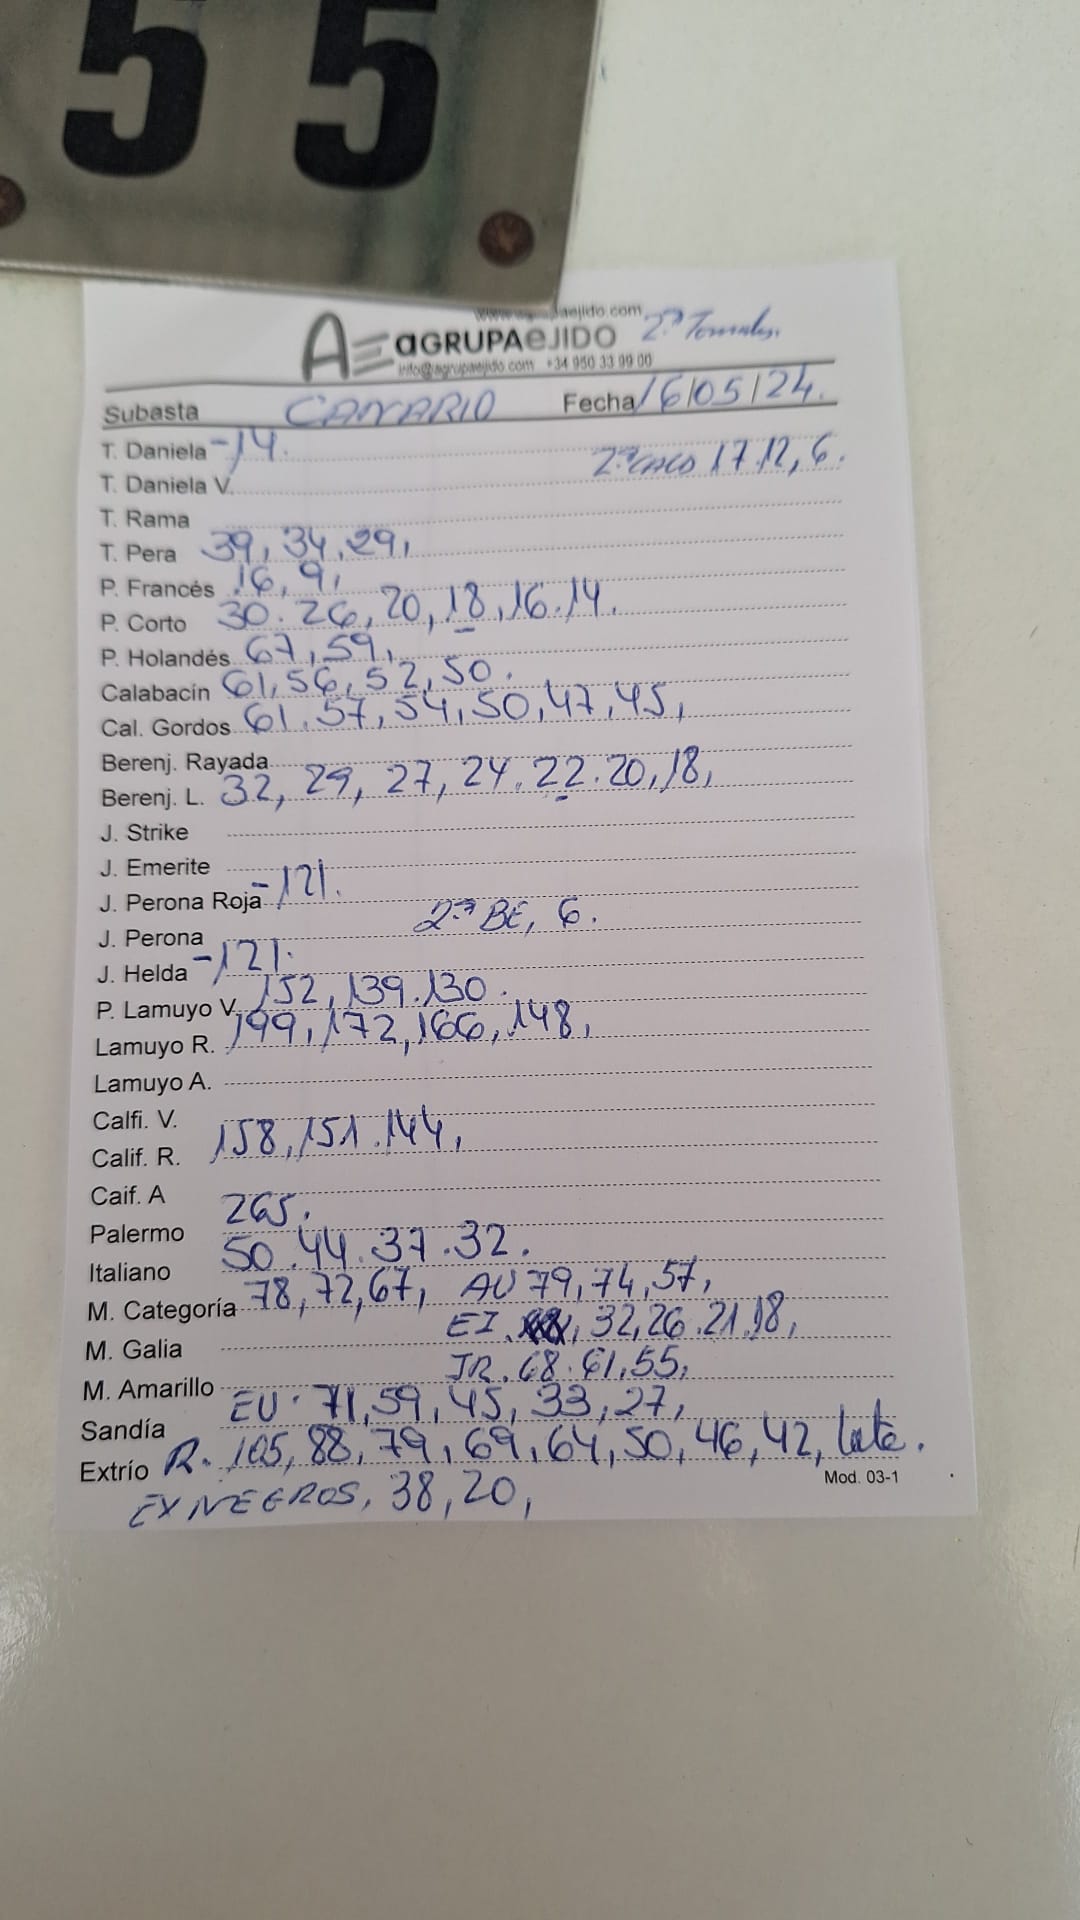 55
www.agrupaejido.com
AGRUPAEJIDO
info@agrupaejido.com +34 950 33 99 00
Subasta CANARIO Fecha 16/05/24.
T. Daniela -14.
2ª CALO 17.12, 6.
T. Daniela V.
T. Rama
T. Pera 39, 34, 29,
P. Francés 16, 9,
P. Corto 30. 26, 20, 18, 16. 14.
P. Holandés 67, 59,
Calabacín 61, 56, 52, 50.
Cal. Gordos 61. 57, 54, 50, 47, 45,
Berenj. Rayada
Berenj. L. 32, 29, 27, 24. 22. 20, 18,
J. Strike
J. Emerite
J. Perona Roja -121.
J. Perona 2ª BE, 6.
J. Helda -121.
P. Lamuyo V. 152, 139. 130.
Lamuyo R. 199, 172, 166, 148,
Lamuyo A.
Calfi. V.
Calif. R. 158, 151. 144,
Caif. A
Palermo 265.
Italiano 50. 44. 37. 32.
M. Categoría 78, 72, 67, AU 79, 74, 57,
M. Galia EI. 32, 26. 21. 18,
M. Amarillo JR. 68. 61, 55,
Sandía EU. 71, 59, 45, 33, 27,
Extrío R. 105, 88, 79, 69, 64, 50, 46, 42,
Mod. 03-1
EX NEGROS, 38, 20,